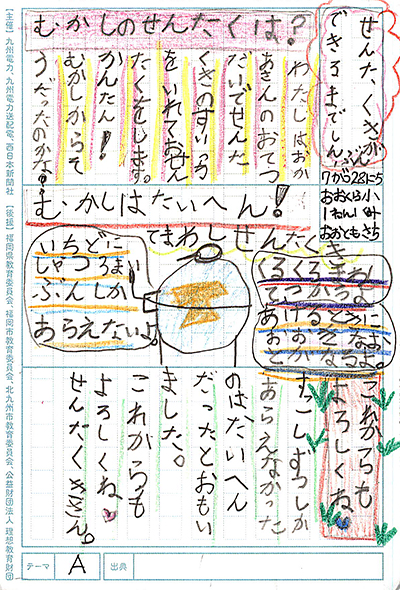 せんたくきが
できるまでしんぶん
7がつ28にち
おおくら小
おおともさち
むかしのせんたくは？
わたしはおか
あさんのおてつ
だいでせんた
くきのすいっち
をいれておせん
たくをします。
かんたん！
むかしからそ
うだったのかな。
むかしはたいへん！
てまわしせんたくき
あけるときに
いちどに
しゃつ3まい
ぶんしか
あらえないよ。
すこしずつしか
あらえなかった
のはたいへん
だったとおもい
ました。
これからも
よろしくね
せんたくきさん。
これからも
よろしくね。
テーマ A 出典
【主催】九州電力、九州電力送配電、西日本新聞社 【後援】福岡県教育委員会、福岡市教育委員会、北九州市教育委員会、公益財団法人 理想教育財団